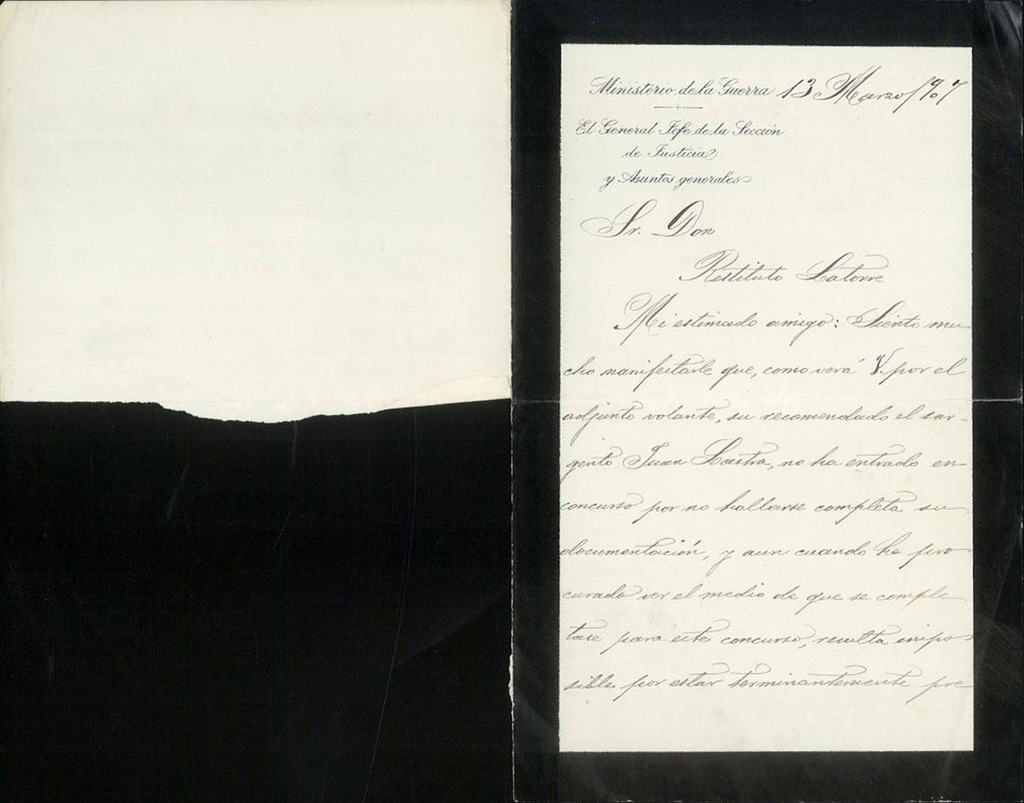 Ministerio de la Guerra 13 Marzo/907
El General Jefe de la Sección
de Justicia
y Asuntos generales
Sr. Don
Restituto Latorre
Mi estimado amigo: Siento mu
cho manifestarle que, como verá V. por el
adjunto volante, su recomendado el sar-
gento Juan Lastra, no ha entrado en
concurso por no hallarse completa su
documentación, y aun cuando he pro
curado ver el medio de que se comple
tase para este concurso, resulta impo-
sible por estar terminantemente pre